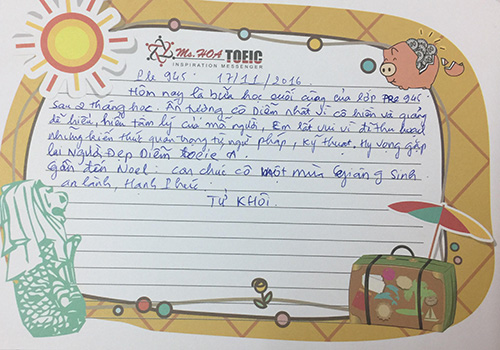 Ms.HOA TOEIC
INSPIRATION MESSENGER
Pre 945: 17/11/2016
Hôm nay là buổi học cuối cùng của lớp PRE 945
sau 2 tháng học. Ấn tượng cô Diễm nhất vì cô hiền và giảng
dễ hiểu, hiểu tâm lý của mọi người, Em rất vui vì đi thu hoạch
những kiến thức quan trọng từ ngữ pháp, kỹ thuật, Hy vọng gặp
lại Người Đẹp Diễm toeic A.
Gần đến Noel: con chúc cô một mùa Giáng Sinh
an lành, Hạnh Phúc.
TỪ KHÔI